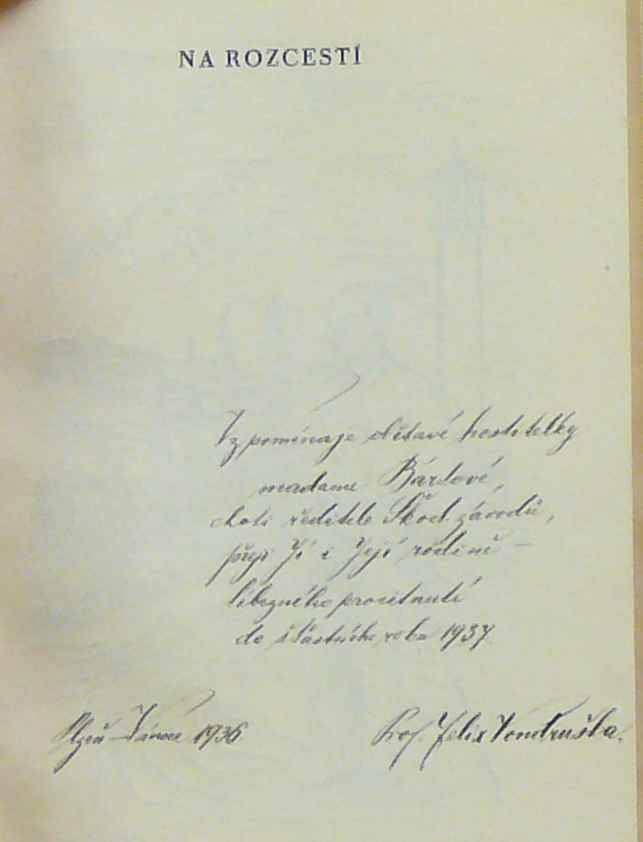 NA ROZCESTÍ
Vzpomínaje dětavé hostitelky
madame Bárdové,
choti ředitele Škod. závodů,
přeji Jí i Její rodině –
líbezného procitnutí
do šťastného roku 1937.
Plzeň – Vánoce 1936
Prof. Felix Vondruška.